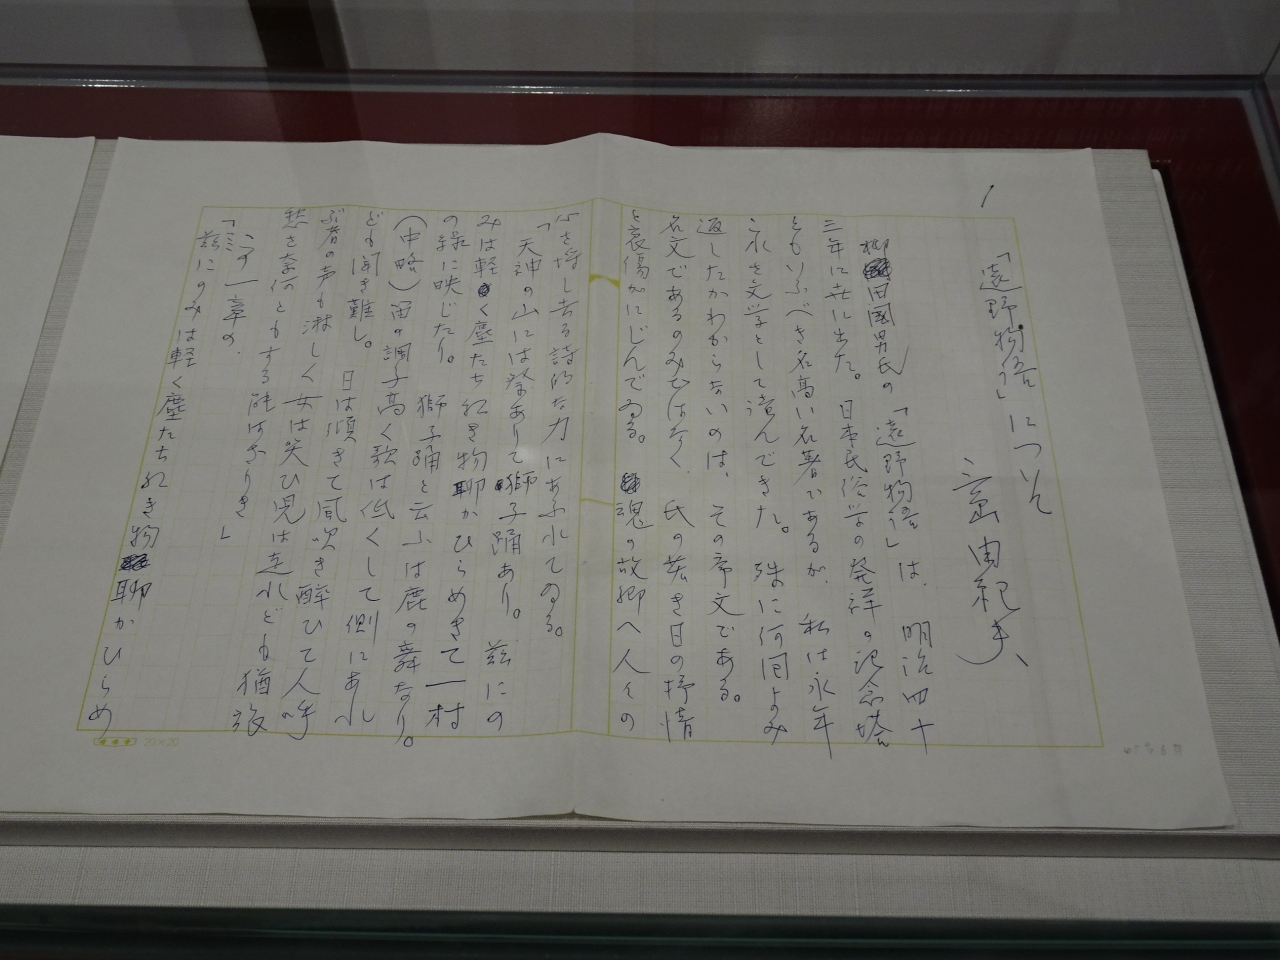 1
「遠野物語」について
三島由紀夫
柳田国男氏の「遠野物語」は、明治四十
三年に世に出た。日本民俗学の発祥の記念塔
ともいふべき名高い名著であるが、私は永年
これを文学として読んできた。殊に何回よみ
返したかわからないのは、その序文である。
名文であるのみではなく、氏の若き日の抒情
と哀傷がにじんでゐる。魂の故郷へ人々の
心を拉し去る詩的な力にあふれてゐる。
「天神の山には祭ありて獅子踊あり。茲にの
みは軽く塵たち紅き物聊かひらめきて一村
の緑に映じたり。獅子踊と云ふは鹿の舞なり。
(中略)笛の調子高く歌は低くして側にあれ
ども聞き難し。日は傾きて風吹き酔ひて人呼
ぶ者の声も淋しく女は笑ひ児は走れども猶旅
愁を奈何ともする能はざりき」
この一章の、
「茲にのみは軽く塵たち紅き物聊かひらめ
20×20